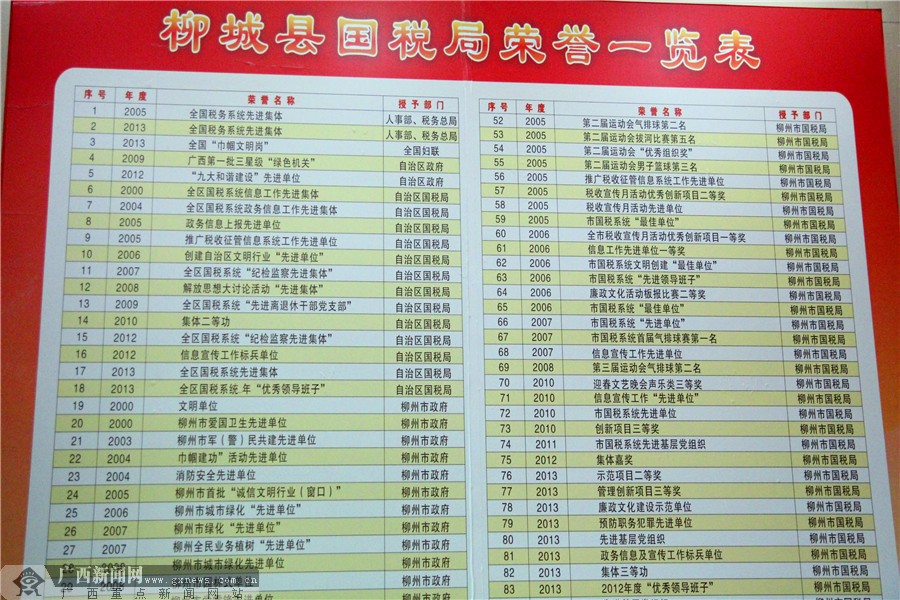 柳城县国税局荣誉一览表
序号 年度 荣誉名称 授予部门
1 2005 全国税务系统先进集体 人事部、税务总局
2 2013 全国税务系统先进集体 人事部、税务总局
3 2013 全国“巾帼文明岗” 全国妇联
4 2009 广西第一批三星级“绿色机关” 自治区政府
5 2012 “九大和谐建设”先进单位 自治区政府
6 2000 全区国税系统信息工作先进集体 自治区国税局
7 2004 全区国税系统政务信息工作先进集体 自治区国税局
8 2005 政务信息上报先进单位 自治区国税局
9 2005 推广税收征管信息系统工作先进单位 自治区国税局
10 2006 创建自治区文明行业“先进单位” 自治区国税局
11 2007 全区国税系统“纪检监察先进集体” 自治区国税局
12 2008 解放思想大讨论活动“先进集体” 自治区国税局
13 2009 全区国税系统“先进离退休干部党支部” 自治区国税局
14 2010 集体二等功 自治区国税局
15 2012 全区国税系统“纪检监察先进集体” 自治区国税局
16 2012 信息宣传工作标兵单位 自治区国税局
17 2013 全区国税系统先进集体 自治区国税局
18 2013 全区国税系统.年“优秀领导班子” 自治区国税局
19 2000 文明单位 柳州市政府
20 2000 柳州市爱国卫生先进单位 柳州市政府
21 2003 柳州市军（警）民共建先进单位 柳州市政府
22 2004 巾帼建功”活动先进单位 柳州市政府
23 2004 消防安全先进单位 柳州市政府
24 2005 柳州市首批“诚信文明行业（窗口）” 柳州市政府
25 2006 柳州市城市绿化“先进单位” 柳州市政府
26 2007 柳州市绿化“先进单位” 柳州市政府
27 2007 柳州全民业务植树“先进单位” 柳州市政府
柳州市城市绿化先进单位 柳州市政府
柳州市政府
序号 年度 荣誉名称 授予部门
52 2005 第二届运动会气排球第二名 柳州市国税局
53 2005 第二届运动会拔河比赛第五名 柳州市国税局
54 2005 第二届运动会“优秀组织奖” 柳州市国税局
55 2005 第二届运动会男子篮球第三名 柳州市国税局
56 2005 推广税收征管信息系统工作先进单位 柳州市国税局
57 2005 税收宣传月活动优秀创新项目二等奖 柳州市国税局
58 2005 税收宣传月活动先进单位 柳州市国税局
59 2005 市国税系统“最佳单位” 柳州市国税局
60 2006 全市税收宣传月活动优秀创新项目一等奖 柳州市国税局
61 2006 信息工作先进单位一等奖 柳州市国税局
62 2006 市国税系统文明创建“最佳单位” 柳州市国税局
63 2006 市国税系统“先进领导班子” 柳州市国税局
64 2006 廉政文化活动板报比赛二等奖 柳州市国税局
65 2006 市国税系统“最佳单位” 柳州市国税局
66 2007 市国税系统“先进单位” 柳州市国税局
67 2007 市国税系统首届气排球赛第一名 柳州市国税局
68 2007 信息宣传工作先进单位 柳州市国税局
69 2008 第三届运动会气排球第二名 柳州市国税局
70 2010 迎春文艺晚会声乐类三等奖 柳州市国税局
71 2010 信息宣传工作“先进单位” 柳州市国税局
72 2010 市国税系统先进单位 柳州市国税局
73 2010 创新项目三等奖 柳州市国税局
74 2011 市国税系统先进基层党组织 柳州市国税局
75 2012 集体嘉奖 柳州市国税局
76 2013 示范项目二等奖 柳州市国税局
77 2013 管理创新项目三等奖 柳州市国税局
78 2013 廉政文化建设示范单位 柳州市国税局
79 2013 预防职务犯罪先进单位 柳州市国税局
80 2013 先进基层党组织 柳州市国税局
81 2013 政务信息及宣传工作标兵单位 柳州市国税局
82 2013 集体三等功 柳州市国税局
83 2013 2012年度“优秀领导班子” 柳州市国税局
柳州市国税局
广西新闻网 www.gxnews.com.cn
广西重点新闻网站